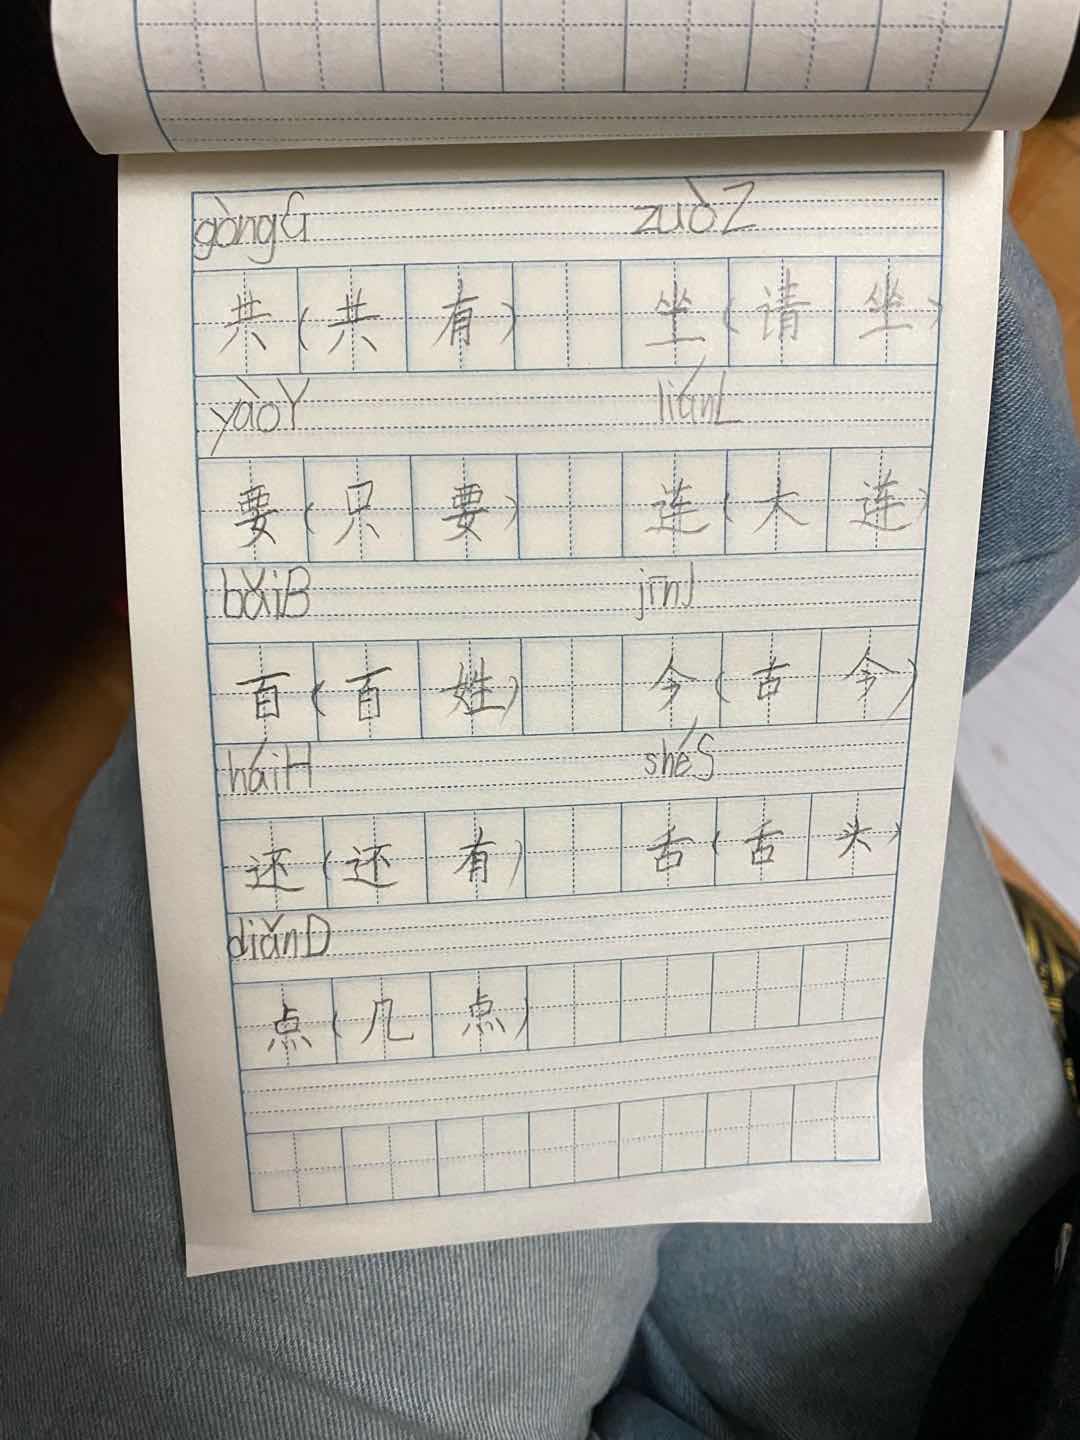 gòngG zuòZ
共(共有) 坐(请坐)
yàoY liánL
要(只要) 连(大连)
bǎiB jīnJ
百(百姓) 今(古今)
háiH shéS
还(还有) 舌(舌头)
diǎnD
点(几点)